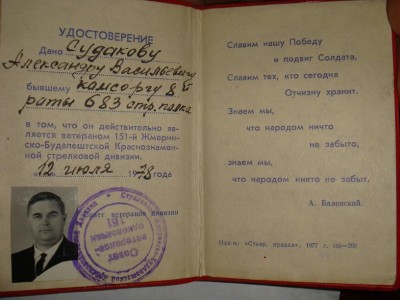 УДОСТОВЕРЕНИЕ
Дано Судакову
Александру Васильевичу
бывшему комсоргу 8 б
раты 683 стр. полка
в том, что он действительно яв-
ляется ветераном 151-й Жмерин-
ско-Будапештской Краснознамен-
ной стрелковой дивизии.
12 июля 1978 года
Совет ветеранов дивизии
Совет
ветеранов
151
Славим нашу Победу
и подвиг Солдата,
Славим тех, кто сегодня
Отчизну хранит.
Знаем мы,
что народом ничто
не забыто,
знаем мы,
что народом никто не забыт.
А. Балонский.
Изд-во «Ставр. правда», 1977 г.